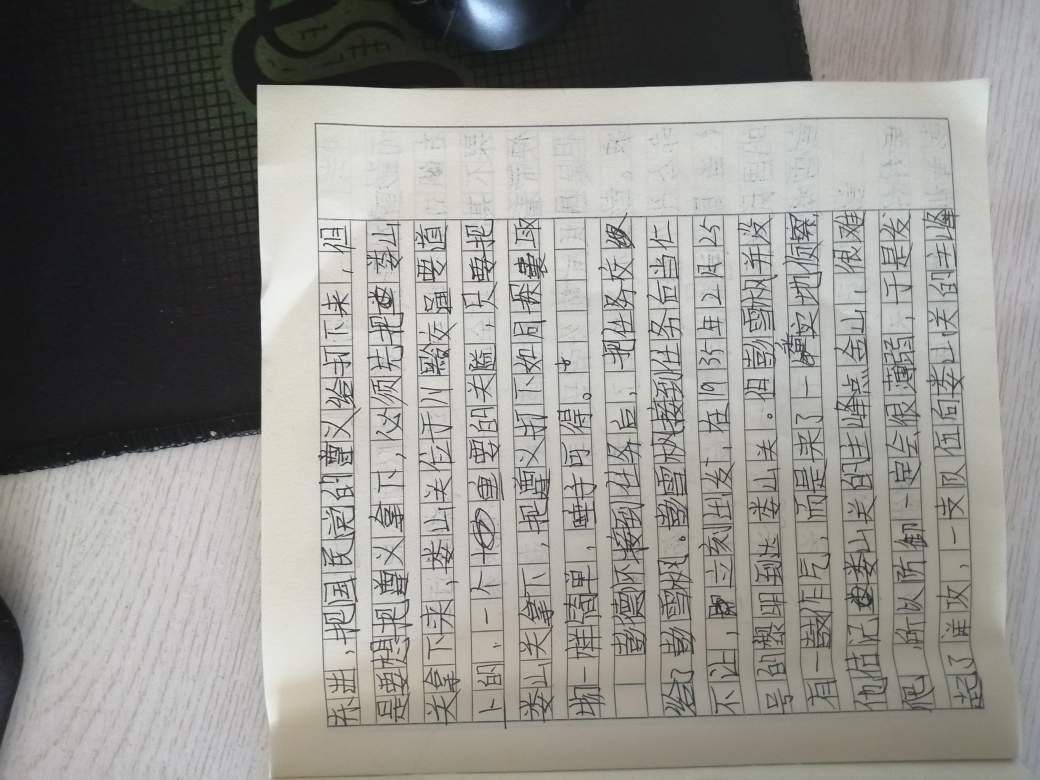 赤此，把国民党的遵义给打下来，但
是要想把遵义拿下，必须先把娄山
关拿下来，娄山关位于川黔交通要道
上的，一个重要的关隘，只要把
娄山关拿下，把遵义打下如同探囊取
物一样简单，唾手可得。
彭德怀接到任务后，把任务交
给了彭雪枫。彭雪枫接到任务后当仁
不让，立刻出发，在1935年2月25
号的黎明到达娄山关。但彭雪枫并没
有一鼓作气，而是来了一实地侦察
他估记娄山关的主峰点金山，很难
爬，所以防御一定会很薄弱，于是发
起了进攻，一支队伍向娄山关的主峰